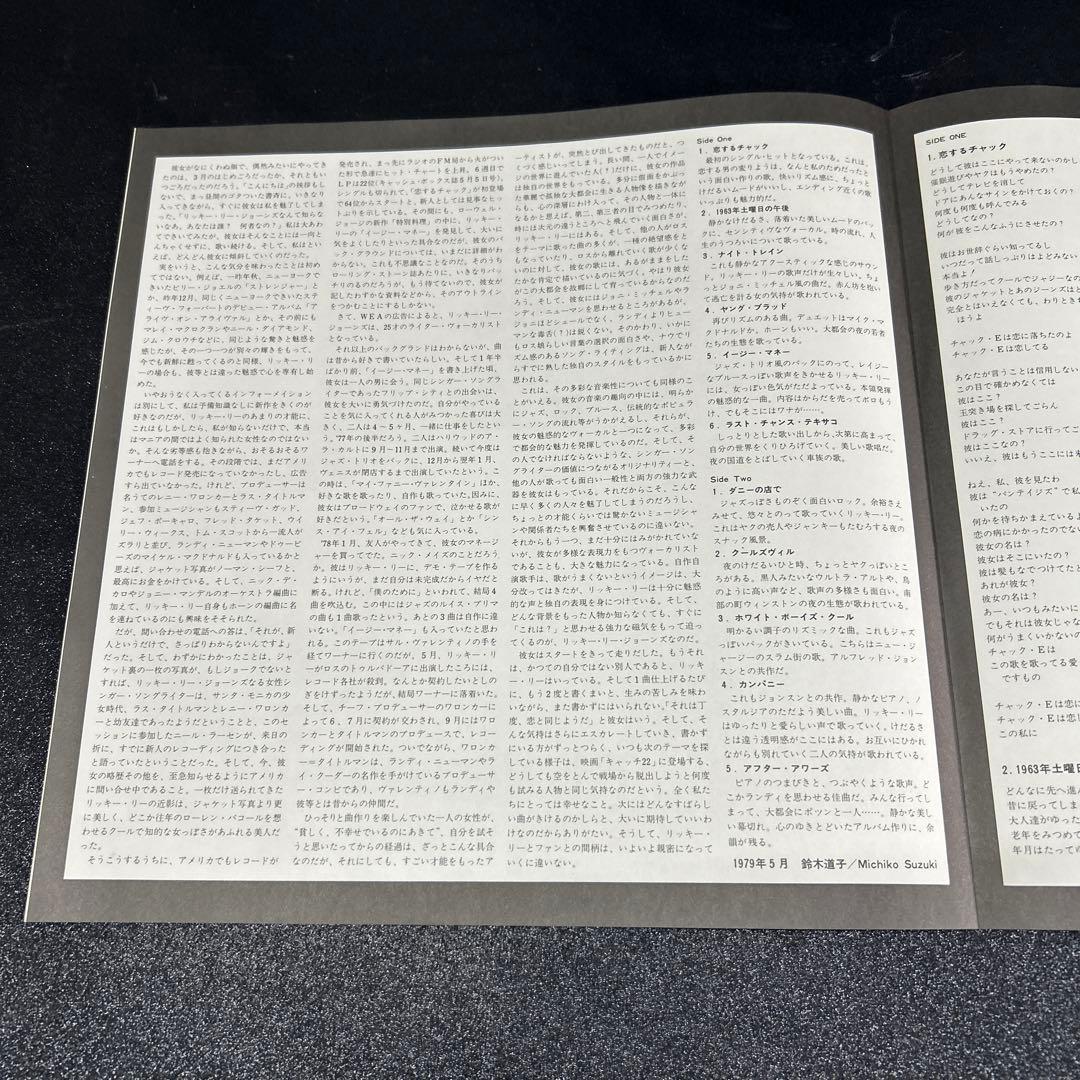 彼女がなにくわぬ顔で、偶然みたいにやってき
たのは、3月のはじめごろだったか、それともい
つごろだったのだろう。「こんにちは」の挨拶もし
ないで、まっ昼間のゴタついた書斉に、いきなり
入ってきながら、すぐに彼女は私を魅了してしま
った。「リッキー・リー・ジョーンズなんて知らな
いなあ。あなたは誰? 何者なの?」私は大あわ
てできいてみたが、彼女はそんなことには一向と
んちゃくせずに、歌い続ける。そして、私はとい
えば、どんどん彼女に傾斜していくのだった。
実をいうと、こんな気分を味わったことは初め
てではない。例えば、一昨年秋、ニューヨークで
きいたビリー・ジョエルの「ストレンジャー」と
か、昨年12月、同じくニューヨークできいたステ
ィーヴ・フォートのデビュー・アルバム「アラ
イヴ・オン・アライヴァル」とか、その前にも
マレイ・マクロクランやニール・ダイアモンド、
ジム・クロウチなどに、同じような驚きと魅惑を
感じたが、その一つ一つが別々の輝きをもって、
今でも新鮮に甦ってくるのと同様、リッキー・リ
ーの場合も、彼等とは違った魅惑で心を専有し始
めた。
いやおうなく入ってくるインフォーメイション
は別にして、私は予備知識なしに新作をきくのが
好きなのだが、リッキー・リーのあまりの才能に、
これはもしかしたら、私が知らないだけで、本当
はマニアの間ではよく知られた女性なのではない
か、そんな劣等感も抱きながら、おそるおそるワ
ーナーへ電話をする。その段階では、まだアメリ
カでもレコード発売になっていなかったし、広告
すら出ていなかった。けれど、プロデューサーは
名うてのレニー・ワロンカーとラス・タイトルマ
ン、参加ミュージシャンもスティーヴ・ガッド、
ジェフ・ポーキャロ、フレッド・タケット、ウイ
リー・ウィークス、トム・スコットから一流人が
ズラリと並び、ランディ・ニューマンやドゥービ
ーズのマイケル・マクドナルドも入っているかと
思えば、ジャケット写真がノーマン・シーフと、
最高にお金をかけている。そして、ニック・デ・
カロやジョニー・マンデルのオーケストラ編曲に
加えて、リッキー・リー自身もホーンの編曲に名
を連ねているのにも興味をそそられた。
だが、問い合わせの電話への答は、「それが、新
人というだけで、さっぱりわからないんですよ」
だった。そして、わずかにわかったことは、ジャ
ケット裏の一枚の写真が、もしジョークでないと
すれば、リッキー・リー・ジョーンズなる女性シ
ンガー・ソングライターは、サンタ・モニカの少
女時代、ラス・タイトルマンとレニー・ワロンカ
ーと幼友達であったようだということと、このセ
ッションに参加したニール・ラーセンが、来日の
折に、すでに新人のレコーディングにつき合った
と語っていたということだった。そして、今、彼
女の略歴その他を、至急知らせるようにアメリカ
に問い合せ中であること。一枚だけ送られてきた
リッキー・リーの近影は、ジャケット写真より更
に美しく、どこか往年のローレン・バコールを想
わせるクールで知的な女っぽさがあふれる美人だ
った。
そうこうするうちに、アメリカでもレコードが
発売され、まっ先にラジオのFM局から火がつい
た形で急速にヒット・チャートを上昇。6週目で
LPは22位(キャッシュ・ボックス誌5月5日号)。
シングルも切られて、「恋するチャック」が初登場
で64位からスタートと、新人としては見事なヒッ
トぶりを示している。その間にも、ローウェル・
ジョージの新作「特別料理」の中に、リッキー・
リーの「イージー・マネー」を発見して、大いに
気をよくしたりといった具合なのだが、彼女のバ
ック・グラウンドについては、いまだに詳細がわ
からない。これも不思議なことなのだ。そのうち
ローリング・ストーン誌あたりに、いきなりバッ
チリのるのだろうが、もう待てないので、彼女が
記したわずかな資料などから、そのアウトライン
をつかむことにするしかない。
さて、WEAの広告によると、リッキー・リー・
ジョーンズは、25才のライター・ヴォーカリスト
となっている。
それ以上のバックグランドはわからないが、曲
は昔から好きで書いていたらしい。そして1年半
ばかり前、「イージー・マネー」を書き上げた頃、
彼女は一人の男に会う。同じシンガー・ソングラ
イターであったフリップ・シティとの出会いは、
彼女を大いに勇気づけたのだ。自分がやっている
ことを気に入ってくれる人がみつかった喜びは大
きく、二人は4~5ヶ月、一緒に仕事をしたとい
う。'77年の後半だろう。二人はハリウッドのア・
ラ・カルトに9~11月まで出演。続いて今度は
ジャズ・トリオをバックに、12月から翌年1月、
ヴェニスが閉店するまで出演していたという。こ
の時は、「マイ・ファニー・ヴァレンタイン」ほか、
好きな歌を歌ったり、自作も歌っていた。因みに、
彼女はブロードウェイのファンで、泣かせる歌が
好きだという。「オール・ザ・ウェイ」とか「シン
ス・アイ・フェル」なども気に入っている。
'78年1月、友人がやってきて、彼女のマネージ
ャーを買ってでた。ニック・メイズのことだろう
か。彼はリッキー・リーに、デモ・テープを作る
ようにいうが、まだ自分は未完成だからイヤだと
断る。けれど、「僕のために」といわれて、結局4
曲を吹込む。この中にはジャズのルイス・プリマ
の曲も1曲歌ったという。あとの3曲は自作に違
いない。「イージー・マネー」も入っていたと思わ
れる。このテープはサル・ヴァレンティノの手を
経てワーナーに行くのだが、5月、リッキー・リ
ーがロスのトゥルバドゥーアに出演したころには、
レコード各社が殺到。なんとか契約したいとしの
ぎをけずったようだが、結局ワーナーに落着いた。
そして、チーフ・プロデューサーのワロンカーに
よって6、7月に契約が交わされ、9月にはワロ
ンカーとタイトルマンのプロデュースで、レコー
ディングが開始された。ついでながら、ワロンカ
ー=タイトルマンは、ランディ・ニューマンやラ
イ・クーダーの名作を手がけているプロデューサ
ー・コンビであり、ヴァレンティノもランディや
彼等とは昔からの仲間だ。
ひっそりと曲作りを楽しんでいた一人の女性が、
"貧しく、不幸せでいるのにあきて"、自分を試そ
うと思いたってからの経過は、ざっとこんな具合
なのだが、それにしても、すごい才能をもったア
ーティストが、突然とび出してきたものだと、つ
くづく感じいってしまう。長い間、一人でイメー
ジの世界に遊んでいた人(?)だけに、彼女の作品
は独自の世界をもっている。多分に仮面をかぶっ
た華麗で孤独な大都会に生きる人物像を描きなが
らも、心の深層にわけ入って、その人物と一体に
なるかと思えば、第二、第三者の目でみつめたり、
時には次元の違うところへと飛んでいく面白さが、
リッキー・リーにはある。そして、他の人がロス
をテーマに歌った曲の多くが、一種の絶望感をと
もなっていたり、ロスから離れていく歌が少なく
ないのに対して、彼女の歌には、あるがままをし
たたかな肯定で描いているのに気づく。やはり彼女
がこの大都会を故郷にして育っているからなのだ
ろう。そして、彼女にはジョニー・ミッチェルやラ
ンディ・ニューマンを思わせるところがあるが、
ジョニほどシュールでなく、ランディよりヒュー
マンな毒舌(?)は鋭くない。そのかわり、いかに
もロス娘らしい言葉の選択の面白さや、ナウでリ
ズム感のあるソング・ライティングは、新人なが
らすでに熟した独自のスタイルをもっているかに
思われる。
これは、その多彩な音楽性についても同様のこ
とがいえる。彼女の音楽の趣向の中には、明らか
にジャズ、ロック、ブルース、伝統的なポピュラ
ー・ソングの流れ等がうかがえるし、それらが、
彼女の魅惑的なヴォーカルと一つになって、多彩
で都会的な魅力を発揮しているのだ。そして、そ
の人でなければならないような、シンガー・ソン
グライターの価値につながるオリジナリティーと、
他の人が歌っても面白い一般性と両方の強力な武
器を彼女はもっている。それだからこそ、こんな
に早く多くの人々を魅了してしまうのだろうし、
ちょっとの才能くらいでは驚かないミュージシャ
ンや関係者たちを興奮させているのに違いない。
それからもう一つ、まだ十分にはみがかれていな
いが、彼女が多様な表現力をもつヴォーカリスト
であることも、大きな魅力になっている。自作自
演歌手は、歌がうまくないというイメージは、大
分改ってはきたが、リッキー・リーは十分に魅惑
的な声と独自の表現を身につけている。そして、
どんな背景をもった人物か知らなくても、すぐに
「これは?」と思わせる強力な磁気をもって迫っ
てくるのが、リッキー・リー・ジョーンズなのだ。
彼女はスタートをきって走りだした。もうそれ
は、かつての自分ではない別人であると、リッキ
ー・リーはいっている。そして1曲仕上げるたび
に、もう2度と書くまいと、生みの苦しみを味わ
いながら、また書かずにはいられない。「それは丁
度、恋と同じようだ」と彼女はいう。そして、そ
んな気持はさらにエスカレートしていき、書かず
にいる方がずっとつらく、いつも次のテーマを探
している様子は、映画「キャッチ22」に登場する、
どうしても空をとんで戦場から脱出しようと何度
も試みる人物と同じ気持なのだという。全く私た
ちにとっては幸せなこと。次にはどんなすばらし
い曲がきけるのかしらと、大いに期待していいわ
けなのだからありがたい。そうして、リッキー・
リーとファンとの間柄は、いよいよ親密になって
いくに違いない。
Side One
1.恋するチャック
最初のシングル・ヒットとなっている。これは、
恋する男の変りようは、なんと私のためだったと
いう面白い作りの歌。快いリズム感に、ちょっと
けだるいムードがいいし、エンディング近くの歌
いっぷりも魅力的だ。
2.1963年土曜日の午後
静かなけだるさ、落着いた美しいムードのバッ
クに、センシティヴなヴォーカル。時の流れ、人
生のうつろいについて歌っている。
3.ナイト・トレイン
これも静かなアクースティックな感じのサウン
ド。リッキー・リーの歌声だけが生々しい。ちょ
っとジョニ・ミッチェル風の曲だ。赤ん坊を抱い
て逃亡を計る女の気持が歌われている。
4.ヤング・ブラッド
再びリズムのある曲。デュエットはマイク・マ
クドナルドか。ホーンもいい。大都会の夜の若者
たちの生態を歌っている。
5.イージー・マネー
ジャズ・トリオ風のバックにのって、レイジー
なブルースっぽい歌声をきかせるリッキー・リー
には、女っぽい色気がただよっている。本領発揮
の魅惑的な一曲。内容はからだを売ってボロもう
け、でもそこにはワナが……。
6.ラスト・チャンス・テキサコ
しっとりとした歌い出しから、次第に高まって、
自分の世界をくりひろげていく。美しい歌唱だ。
夜の国道をとばしていく車族の歌。
Side Two
1.ダニーの店で
ジャズっぽさものぞく面白いロック。余裕さえ
みせて、悠々とのって歌っていくリッキー・リー。
これはヤクの売人やジャンキーもたむろする夜の
スナック風景。
2.クールズヴィル
夜のけだるいひと時、ちょっとヤクっぽいとこ
ろがある。黒人みたいなウルトラ・アルトや、鳥
のように高い声など、歌声の多様さも面白い。南
部の町ウィンストンの夜の生態が歌われている。
3.ホワイト・ボーイズ・クール
明かるい調子のリズミックな曲。これもジャズ
っぽいバックがきいている。こちらはニュー・ジ
ャージーのスラム街の歌。アルフレッド・ジョン
スンとの共作だ。
4.カンパニー
これもジョンスンとの共作。静かなピアノ、ノ
スタルジアのただよう美しい曲。リッキー・リー
はゆったりと愛らしい声で歌っていく。けだるさ
とは違う透明感がここにはある。お互いにひかれ
ながらも別れていく二人の気持が歌われている。
5.アフター・アワーズ
ピアノのつまびきと、つぶやくような歌声。ど
こかランディを思わせる佳曲だ。みんな行ってし
まって、大都会にポツンと一人……。静かな美し
い幕切れ。心のゆきとどいたアルバム作りに、余
韻が残る。
1979年5月 鈴木道子/Michiko Suzuki
SIDE ONE
1.恋するチャック
どうして彼はここにやって来ないのかし
催眠遊びやヤクはもうやめたの?
どうしてテレビを消して
ドアにあんなサインをかけておくの?
何度も何度も呼んでみる
どうしてなの?
何が彼をこんなふうにさせたの?
彼はお世辞ぐらい知ってるし
いつだって話しっぷりはよどみない
本当よ!
歩き方だってクールでジャージーなの
彼のジャケットとあのジーンズは
完全とはいえなくても、わりときま
ほうよ
チャック・Eは恋に落ちたのよ
チャック・Eは恋してる
あなたが言うことは信用しない
この目で確かめなくては
彼はここ?
玉突き場を探してごらん
彼はここ?
ドラッグ・ストアに行ってご
彼はここなの?
いいえ、彼はもうここには来
ねえ、私、彼を見たわ
彼は"パンテイジズ"で私
いたの
何かを待ちかまえているよ
恋の病にかかったのでな
彼女の名は?
彼はそこにいたの?
彼は髪もなでつけてたと
あれが彼女?
彼女の名は?
あー、いつもみたいに
でもそれは彼女じゃな
何がうまくいかないの
チャック・Eは
この歌を歌ってる愛
ですもの
チャック・Eは恋に
チャック・Eは恋に
この私に
2.1963年土曜日
どんなに先へ進ん
昔に戻ってしま
大人達がゆった
老年をみつめて
年月はたってゆ